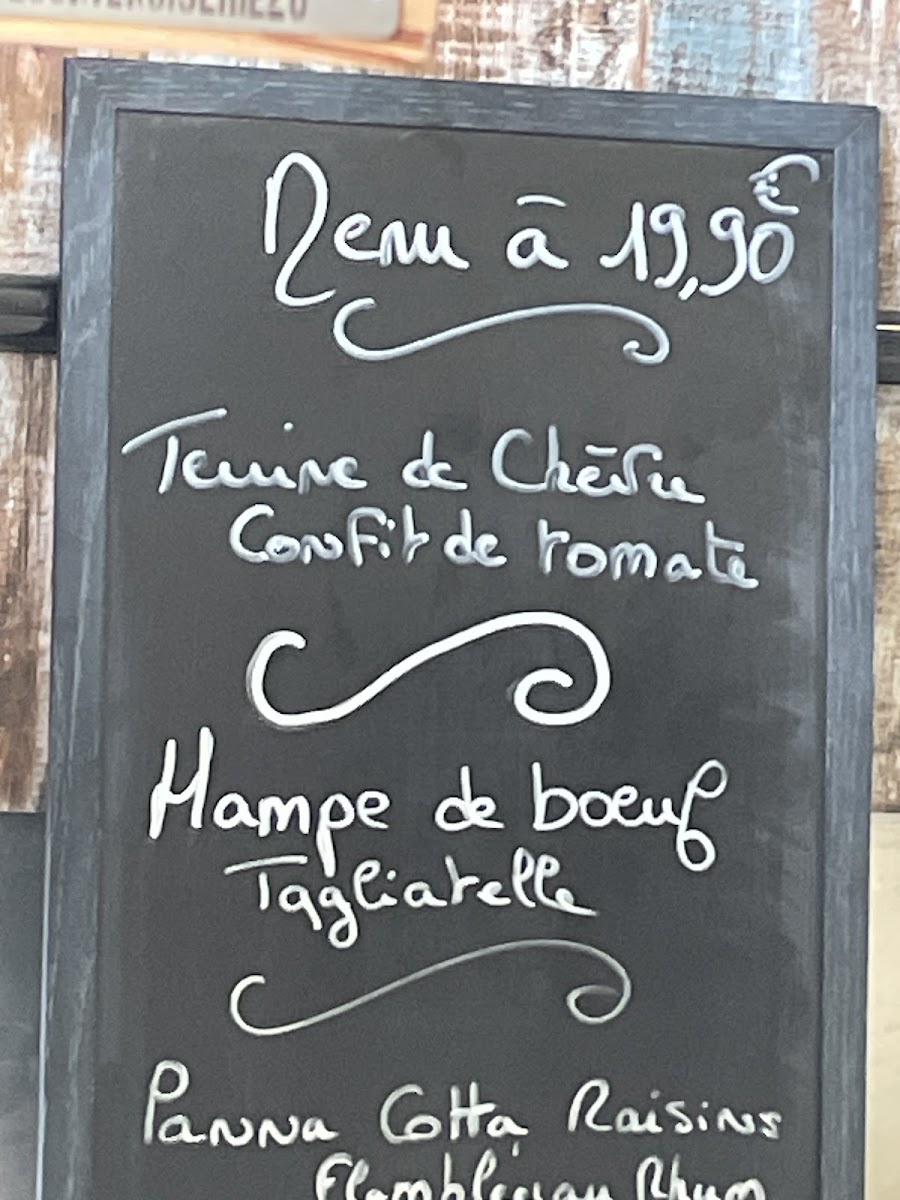 Menu à 19,90€
Terrine de Chèvre
Confit de tomate
Hampe de boeuf
Tagliatelle
Panna Cotta Raisins
Rhum